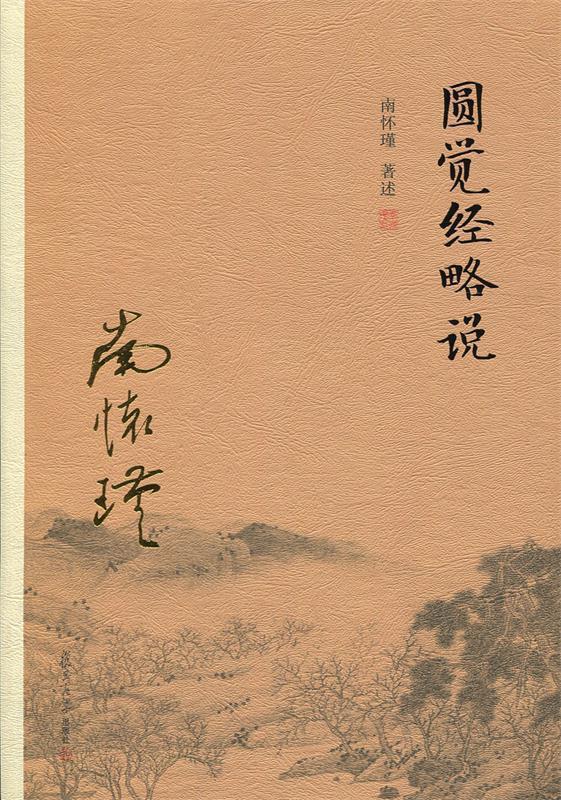 圆觉经略说
南怀瑾 著述
南懷瑾
出版社